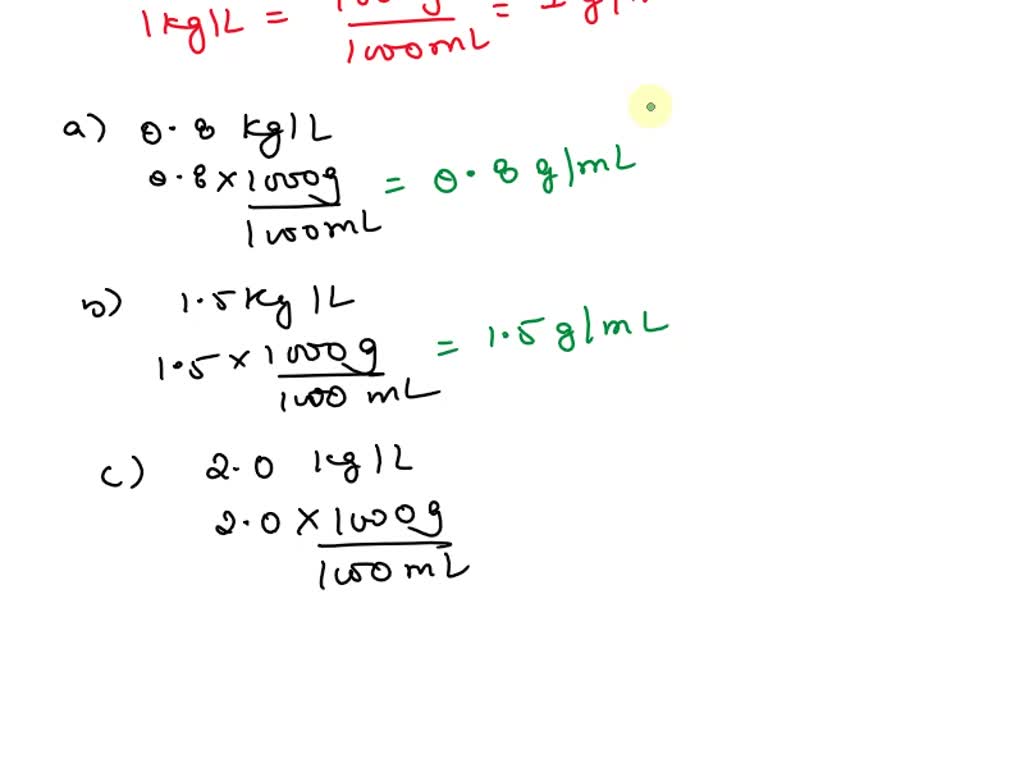 1 kg/L = 1000 g / 1000 mL = 1 g/m
a) 0.8 kg/L
0.8 × 1000g / 1000 mL = 0.8 g/mL
b) 1.5 kg/L
1.5 × 1000g / 1000 mL = 1.5 g/mL
c) 2.0 kg/L
2.0 × 1000g / 1000 mL